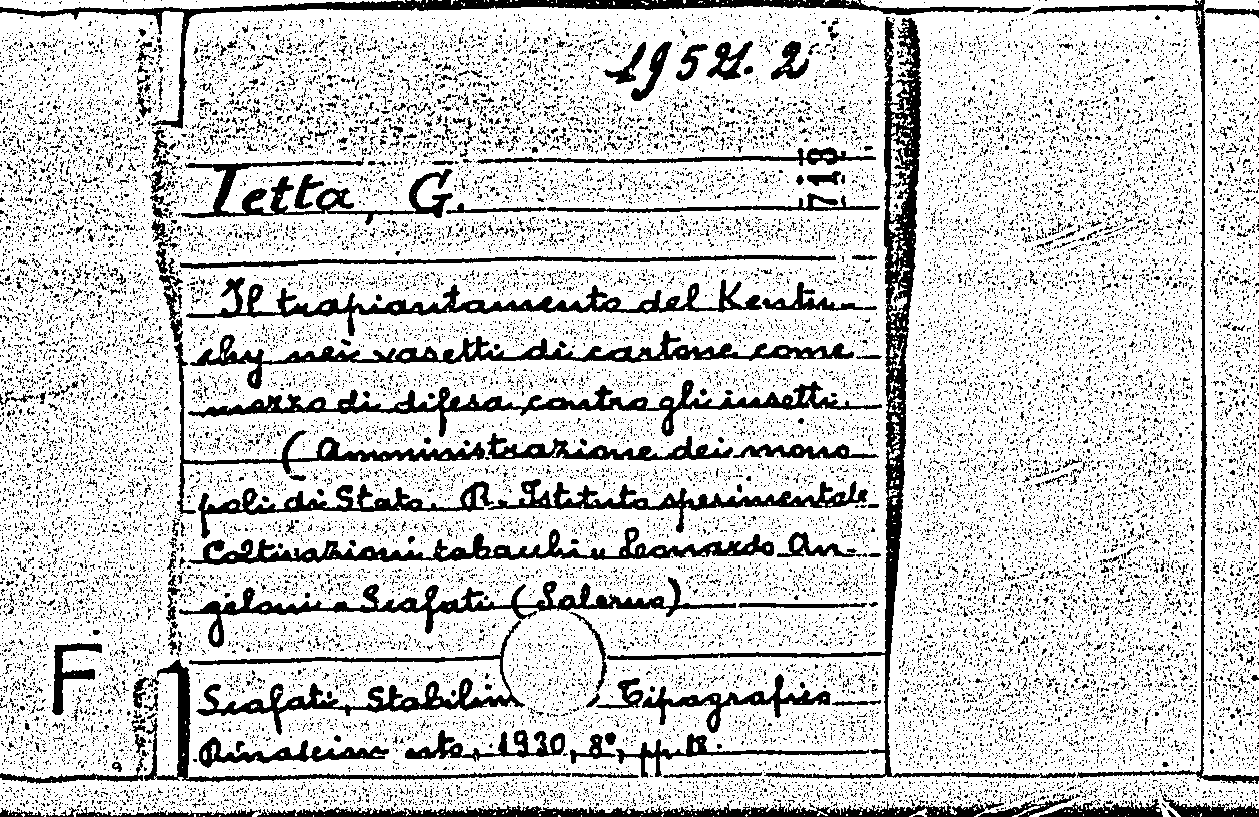 19521.2
713
Tetta, G.
Il trapiantamento del Kentu-
cky nei vasetti di cartone come
mezzo di difesa contro gli insetti.
(Amministrazione dei mono
poli di Stato. R. Istituto sperimentale
Coltivazioni tabacchi "Leonardo An-
geloni" Scafati (Salerno)
F
Scafati, Tipografico
1930, 8°, pp. 18.